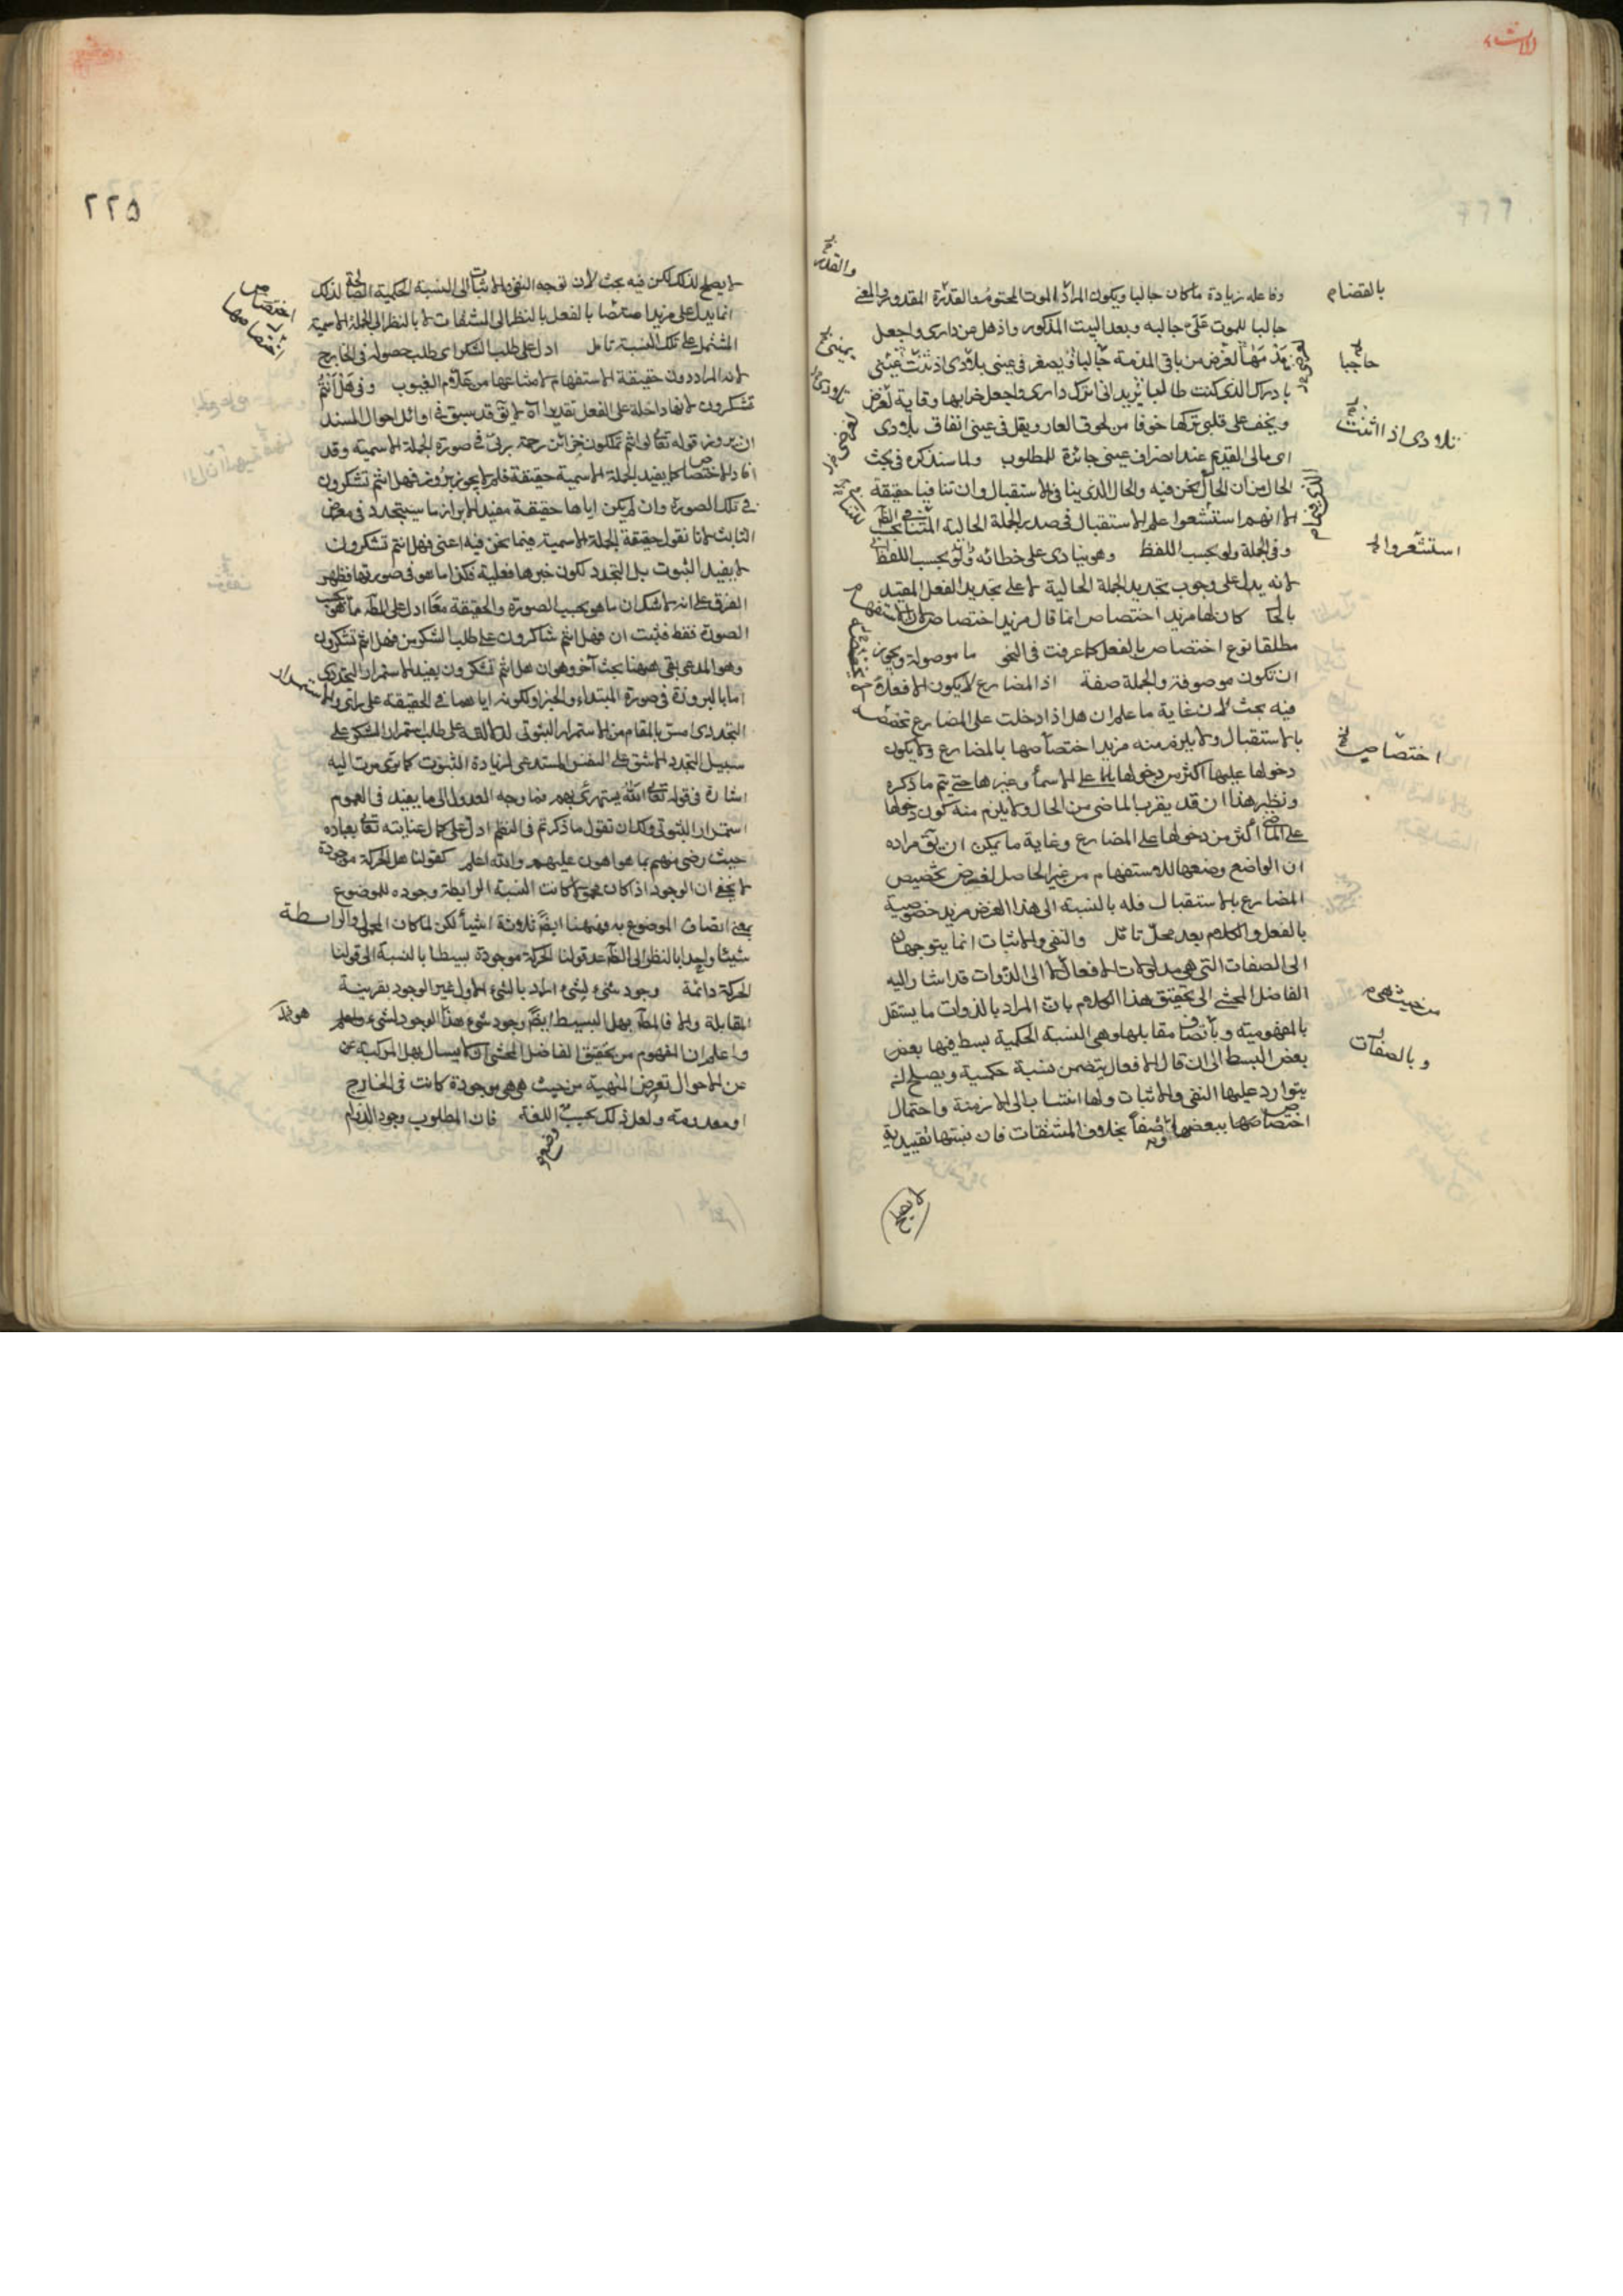 وفاعله زيادة ما كان جالبا ويكون المراد الموت المحتوم والقدرة المقدور والمعنى
جالبا للموت على جالبه وبعد البيت المذكور واذهل عن دارى واجعل
هدمها لعرض من باقى المذمة حاجبا ويصغر فى عينى بلادى اذ انثنت يمينى
بادراك الذى كنت طالبا يريد انى اترك دارى واجعل خرابها وقاية لعرضى
ويخف على قلبى تركها خوفا من لحوق العار ويقل فى عينى انفاق بلادى
اى مالى القديم عند انصراف عينى حائزة للمطلوب ولما سنذكره فى بحث
الحال من ان الحال نحن فيه والحال الذى ينافى الاستقبال وان تنافيا حقيقة
الا انهم استشعوا علم الاستقبال فى صدر الجملة الحالية
وفى الجملة ولو بحسب اللفظ وهو ينادى على خطائه ولو بحسب اللفظ
لانه يدل على وجوب تجريد الجملة الحالية لا على تجريد الفعل المقيد
بالحا كان لها مزيد اختصاص انما قال مزيد اختصاص لان الاستفهام
مطلقا نوع اختصاص بالفعل كما عرفت فى النحو ما موصولة ويجوز
ان تكون موصوفة والجملة صفة اذ المضارع لا يكون الا فعلا
فيه بحث لان غاية ما علم ان هل اذا دخلت على المضارع تخصصه
بالاستقبال ولا يلزم منه مزيد اختصاصها بالمضارع ولا يكون
دخولها عليها اكثر من دخولها على الاسماء وغيرها حتى يتم ما ذكره
ونظير هذا ان قد يقرب الماضى من الحال ولا يلزم منه كون دخولها
على الماضى اكثر من دخولها على المضارع وغاية ما يمكن ان يق مراده
ان الواضع وضعها للاستفهام من غير الحاصل لغرض تخصيص
المضارع بالاستقبال فله بالنسبة الى هذا الغرض مزيد خصوصية
بالفعل والكلام بعد محل تامل والنفى والاثبات انما يتوجهان
الى الصفات التى هى مدلولات الافعال لا الى الذوات قد اشار اليه
الفاضل المحشى الى تحقيق هذا الكلام بان المراد بالذوات ما يستقل
بالمفهومية وبالصفات مقابلها وهى النسبة الحكمية بسط فيها بعض
بعض البسط الى ان قال الافعال يتضمن نسبة حكمية ويصلح لان
يتوارد عليها النفى والاثبات ولها انتساب الى الازمنة واحتمال
اختصاصها ببعضها وضعا بخلاف المشتقات فان نسبتها تقييدية
لا يصلح
بالقضاء
حاجبا
بلادى اذا انثنت
استشعروا
اختصاص
من حيث هى
وبالصفات
والقدر
٢٢٥
لا يصلح لذلك لكن فيه بحث لان توجه النفى والاثبات الى النسبة الحكمية الصالحة لذلك
انما يدل على مزيد اختصاصها بالفعل بالنظر الى المشتقات لا بالنظر الى الجملة الاسمية
المشتمل على تلك النسبة تامل ادل على طلب الشكر اى طلب حصوله فى الخارج
لانه المراد دون حقيقة الاستفهام لامتناعها من علام الغيوب وفى هل انتم
تشكرون لانها داخلة على الفعل تقديرا لا يق قد سبق فى اوائل احوال المسند
ان بروز قوله تعالى لو انتم تملكون خزائن رحمة ربى فى صورة الجملة الاسمية وقد
افاد الاختصاص كما يفيد الجملة الاسمية حقيقة فلم لا يجوز بروز فهل انتم تشكرون
فى تلك الصورة وان لم يكن اياها حقيقة مفيد الابراز ما سيتجدد فى معرض
الثابت لانا نقول حقيقة الجملة الاسمية فيما نحن فيه اعنى فهل انتم تشكرون
لا يفيد الثبوت بل التجدد لكون خبرها فعلية فكذا ما هو فى صورتها فظهر
الفرق على انه لا شك ان ما هو بحسب الصورة والحقيقة معا ادل على المط مما هو بحسب
الصورة فقط فثبت ان فهل انتم شاكرون على طلب الشكر من فهل انتم تشكرون
وهو المدعى بقى ههنا بحث آخر وهو ان هل انتم تشكرون يفيد الاستمرار التجددى
اما بالبروز فى صورة المبتداء والخبر او لكونه اياهما فى الحقيقة على راى والاستمرار
التجددى امس بالمقام من الاستمرار الثبوتى لدلالته على طلب استمرار الشكر على
سبيل التجدد الاشق على النفس المستدعى لزيادة الثبوت كما مرت اليه
اشارة فى قوله تعالى الله يستهزئ بهم فما وجه العدول الى ما يفيد فى العموم
استمرار الثبوتى ولك ان تقول ما ذكر تم فى النظم ادل على كمال عنايته تعالى بعباده
حيث رضى منهم بما هو اهون عليهم والله اعلم كقولنا هل الحركة موجودة
لا يخفى ان الوجود اذا كان محمولا كانت النسبة الرابطة وجوده للموضوع
بمعنى اتصاف الموضوع به فههنا ايضا ثلاثة اشياء لكن لما كان المحمول والرابطة
شيئا واحدا بالنظر الى الظاهر عد قولنا الحركة موجودة بسيطا بالنسبة الى قولنا
الحركة دائمة وجود شىء لشىء اراد بالشىء الاول غير الوجود بقرينة
المقابلة والا فالمط بهل البسيط ايضا وجود شىء هو الوجود لشىء واعلم
واعلم ان المفهوم من تحقيق الفاضل المحشى ان ما يسأل بهل المركبة عن
عن الاحوال تعرض الماهية من حيث هى هى موجودة كانت فى الخارج
او معدومة ولعل ذلك بحسب اللغة فان المطلوب وجود الدوام
اختصاص